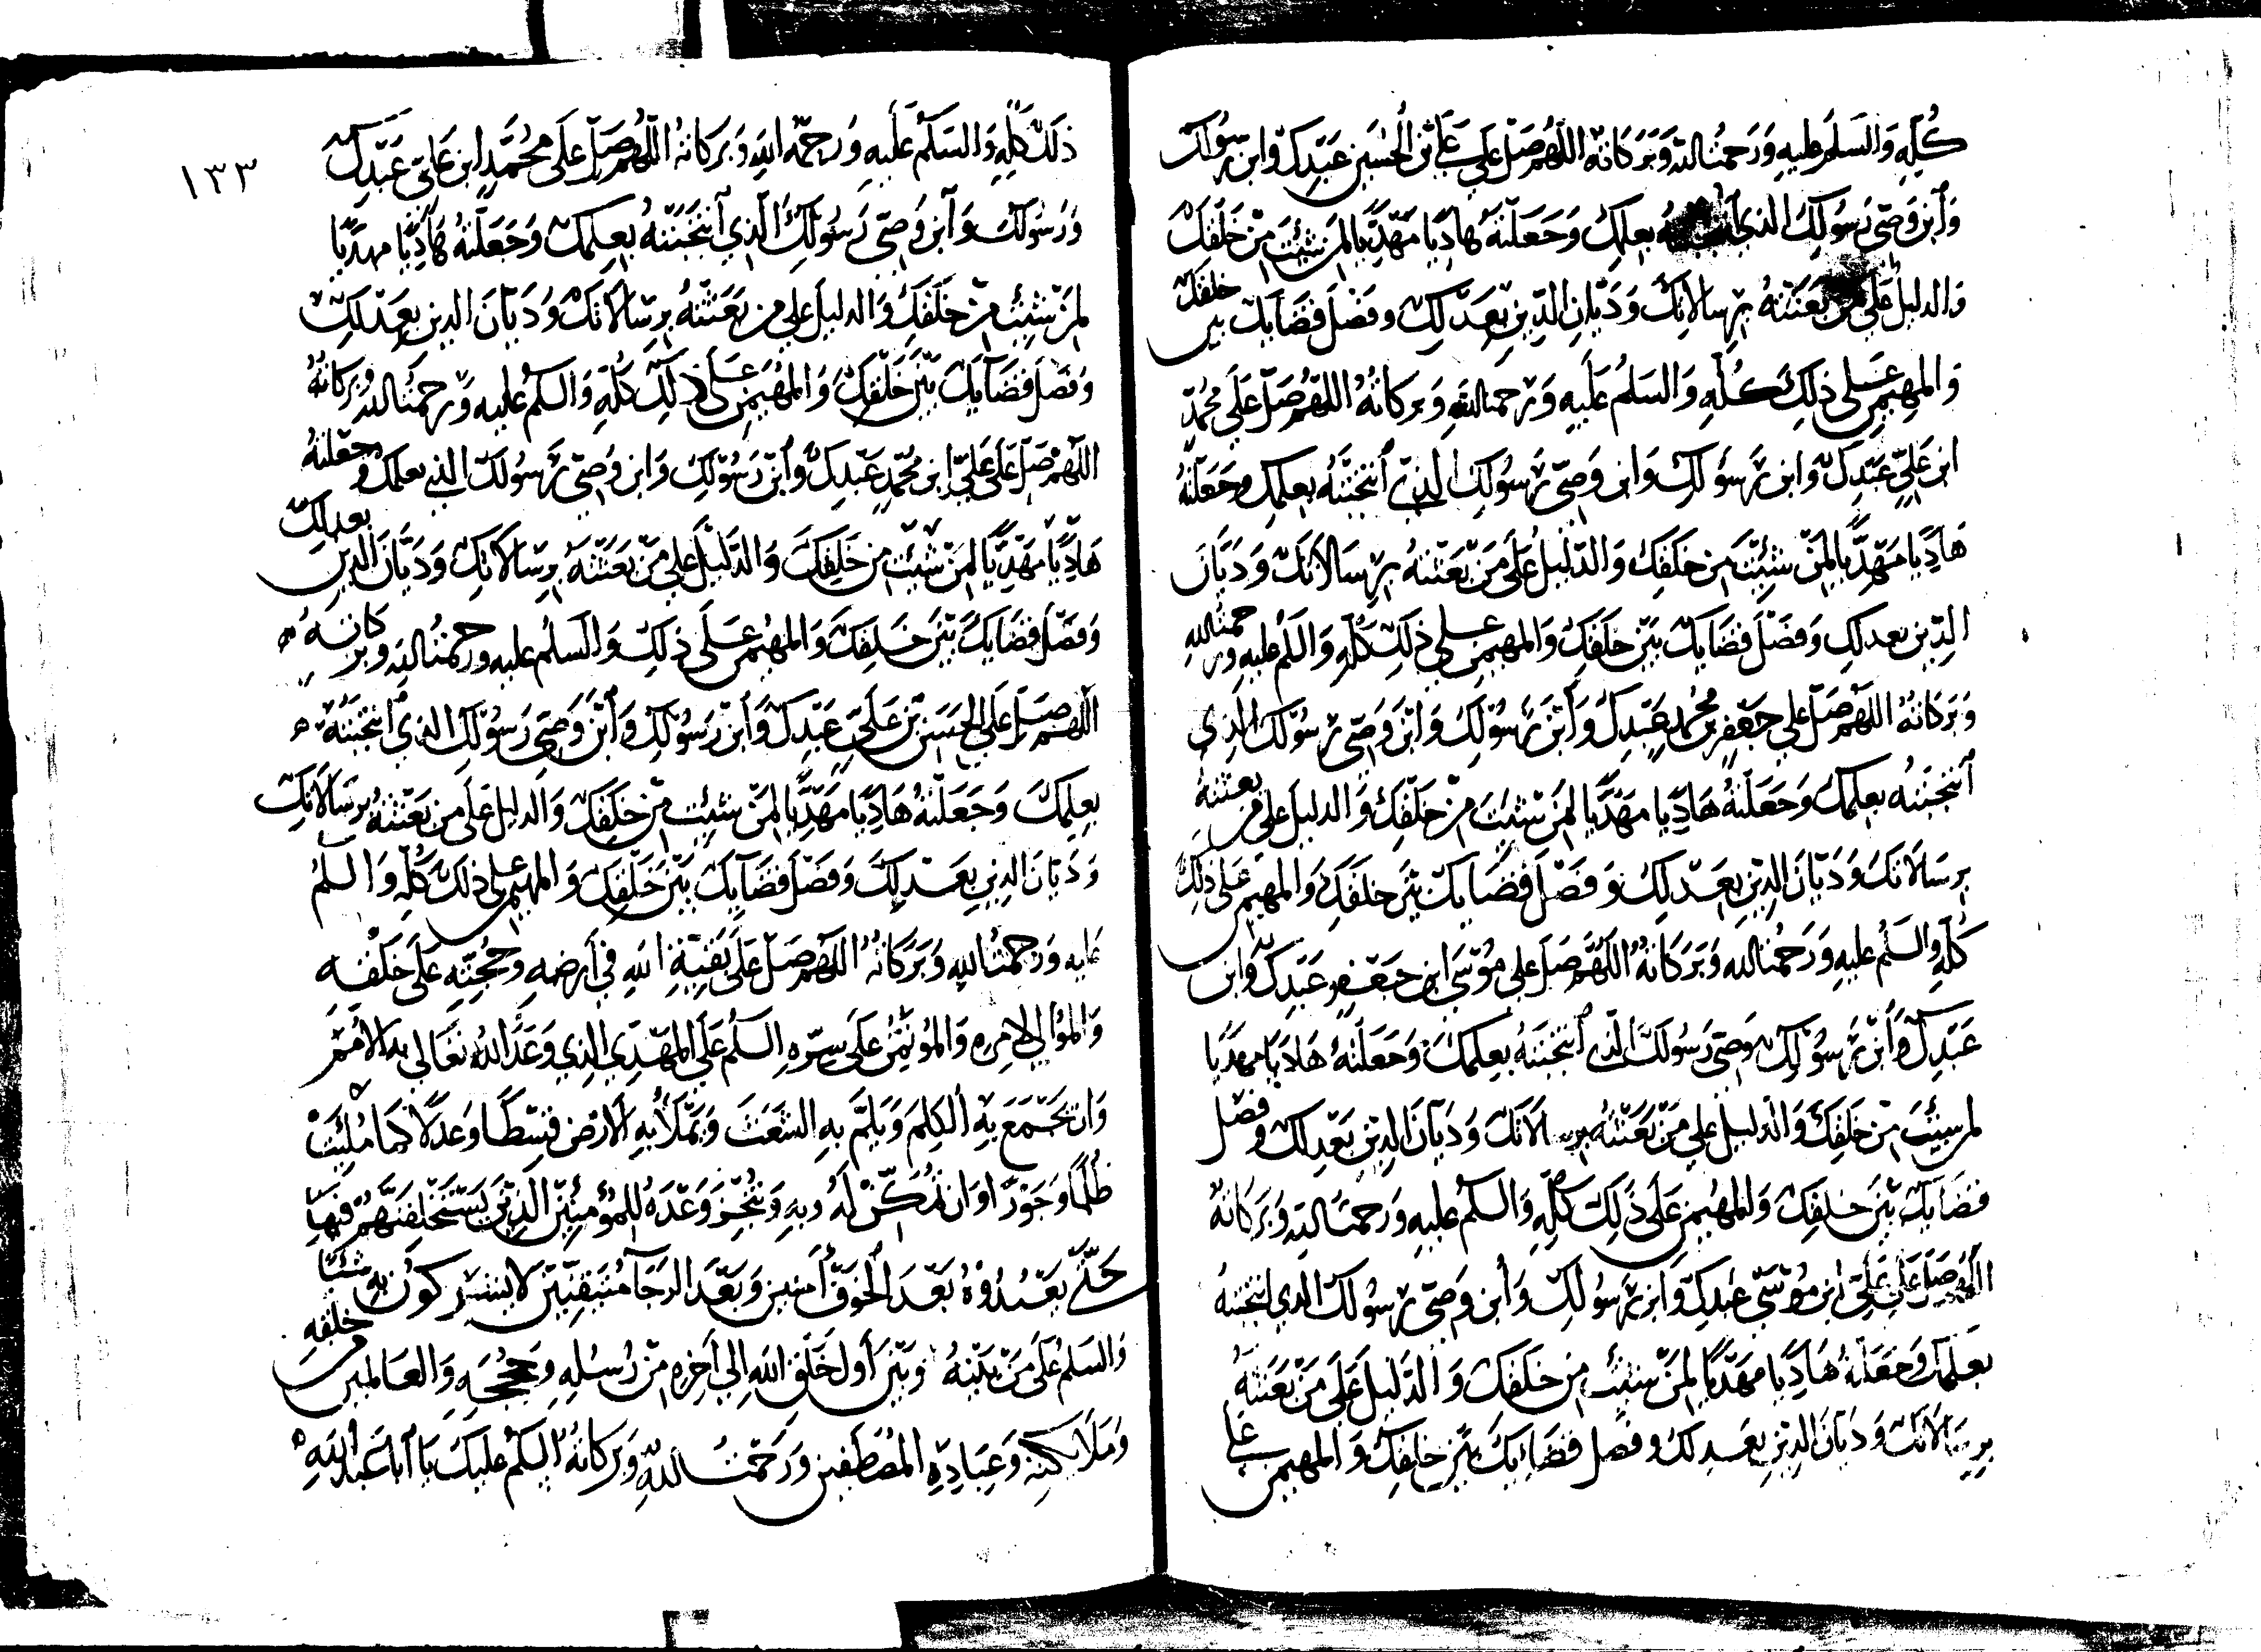 كُلِّهِ وَالسَلَمُ عليهِ وَرَحمتُ اللهِ وَبَرَكاتهُ اللّهُمَّ صَلِّ عَلى عَلىِّ بْنِ الحُسَينِ عَبْدِكَ وَابن رَسُولِكَ
وَاَبنِ وَصىِّ رَسُولِكَ الذي بعلمِكَ وَجَعَلْتَهُ هادِيًا مَهْدِيًّا لِمَن شِئتَ مِنْ خَلْقِكَ
وَالدليلُ عَلى مَن بَعَثْتَهُ بِرِسالاتِكَ وَدَيّانِ الدِّينِ بِعَدْلِكَ وفَصْلَ قَضَايكَ بين خلقك
وَالمهيمن عَلى ذلِكَ كُلِّهِ وَالسَلمُ عَلَيهِ وَرحمتُ اللهِ وَبركاتُهُ اللهُمَّ صَلِّ عَلى مُحمَّدِ
ابن عَلىِّ عَبْدِكَ وَابن رَسُولِكَ وَابن وَصىِّ رَسُولِكَ الذي اَنتجَبْتَهُ بعِلمِكَ وَجَعَلْتَهُ
هَادِيًا مَهْدِيًّا لِمَنْ شِئتَ مِن خَلقِكَ وَالدّليلُ عَلى مَنْ بَعَثتهُ بِرِسَالاتكَ وَدَيّانَ
الدِّينِ بعدلكِ وَفَصْلَ قَضَايكَ بَيْنَ خلقِكَ وَالمهيمن عَلى ذلِكَ كُلِّهِ وَالسَلمُ عليهِ ورحمتُ اللهِ
وَبَرَكاتُهُ اللّهُمَّ صَلِّ عَلى جَعْفَرِ بن مُحمدٍ عَبْدِكَ وَاَبْنِ رَسُولِكَ وَابْنَ وَصىِّ رسُولكَ الذِي
اَنتجَبْتَهُ بعلمكَ وَجَعَلْتهُ هَادِيًا مهْدِيًا لِمَنْ شِئتَ مِنْ خلقِكَ وَالدليلَ عَلى مَن بعثتهُ
بِرِسَالاتكَ وَدَيّانَ الدِينِ بِعَدْلِكَ وَفَصْلَ قضَايكَ بَيْنَ خلقكَ وَالمهيمن عَلى ذلِكَ
كُلِّهِ وَالسَلمُ عليهِ وَرَحمتُ اللهِ وَبَرَكاتهُ اللّهُمَّ صَلِّ عَلى مُوْسَى ابن جَعْفَرٍ عَبْدِكَ وَابن
عَبْدِكَ وَاَبْن رَسُولِكَ وَصىِّ رَسُولكَ الذي اَنتجَبْتَهُ بعِلمكَ وَجَعَلْتهُ هَادِيًا مهدِيًا
لمن شِئتَ مِن خَلقِكَ وَالدليلُ عَلى مَنْ بَعَثْتهُ برسالاتكَ وَدَيّانَ الدِينِ بَعْدِلكَ وفصْل
قضَايكَ بَينَ خلقِكَ وَالمهيمن عَلى ذلِكَ كُلِّهِ وَالسلمُ عليهِ وَرَحمتُ اللهِ وَبَرَكاتهُ
اللّهُمَّ صَلِّ عَلى عَلىِّ ابن مُوْسَى عَبْدِكَ وَابن رَسُولِكَ وَاَبن وَصىِّ رسُولكَ الذي انتجبتهُ
بعِلمكَ وَجَعَلْتهُ هَادِيًا مَهْدِيًا لِمَنْ شِئتَ مِن خَلقِكَ وَالدَّليلَ عَلى مَنْ بَعَثتهُ
بِرِسَالاتكَ وَدَيّانَ الدِينِ بعَدلكَ وفصل قضَايكَ بَيْنَ خلقِكَ وَالمهيمن عَلى
١٣٣
ذلكَ كُلِّهِ وَالسَلَمُ عَلَيهِ وَرحمَّةُ اللهِ وَبَرَكاتهُ اللّهُمَّ صَلِّ عَلى مُحَمَّدٍ ابن عَلىِّ عَبْدِكَ
وَرَسُولكَ وَاَبن وَصىِّ رَسُولِكَ الذِي اَنتجَبْتَهُ بعِلمكَ وَجَعَلْتهُ هَادِيًا مهديًا
لِمَنْ شِئتَ مِنْ خَلقِكَ وَالدليلَ عَلى مَن بَعَثْتهُ برِسَالاتكَ وَدَيّانَ الدين بعَدْلِكَ
وَفَصْلَ قضَايكَ بَيْنَ خَلْقِكَ وَالمهيمن عَلى ذلِكَ كُلِّهِ وَالسلمُ عليهِ وَرَحمتُ اللهِ وبركاتهُ
اللّهُمَّ صَلِّ عَلى عَلىِّ ابن مُحَمَّدٍ عَبْدِكَ وَاَبْن رَسُولِكَ وَابن وَصىِّ رَسُولكَ الذي بعلمكَ وجعلتهُ
هَادِيًا مَهْدِيًا لِمَنْ شِئتَ مِن خَلقِكَ وَالدَّليلَ عَلى مَنْ بَعَثْتهُ برِسَالاتكَ وَدَيّانَ الدين بعدلك
وَفَصْلَ قضَايكَ بَيْنَ خَلقِكَ وَالمهيمن عَلى ذلِكَ وَالسلمُ عليه ورحمتُ اللهِ وبركاتهُ
اللّهُمَّ صَلِّ عَلى الحَسَن بْن عَلىِّ عَبْدِكَ وَاَبن رَسُولِكَ وَاَبْن وَصىِّ رَسُولِكَ الذي اَنتجَبْتهُ
بعِلمكَ وَجَعَلتهُ هَادِيًا مَهْدِيًا لِمَنْ شِئتَ مِن خَلقِكَ وَالدليل عَلى مَن بَعَثتهُ برسَالاتكَ
وَدَيّانَ الدِينِ بعَدْلِكَ وَفَصْلَ قضَايكَ بَيْنَ خَلْقِكَ وَالمهيمن عَلى ذلكَ كُلِّهِ وَالسلمُ
عليه وَرَحمتُ اللهِ وَبَرَكاتهُ اللّهُمَّ صَلِّ عَلى بَقيّةِ اللهِ في اَرضهِ وَحُجَّتِهِ عَلى خلقهِ
وَالمُوالي لامرِهِ وَالمُوتَمَن عَلى سِرِّهِ السَلمُ عَلَى المَهْدِي الذِي وَعَدَ اللهُ تعَالى بهِ الاُمَمَ
وَان يَجْمَعَ بِهِ الكلِمَ وَيَلُمَّ بِهِ الشَعَثَ وَيَمْلأ بهِ الاَرْضَ قِسْطًا وعَدلًا كمَا مُلِئَتْ
ظُلمًا وَجَوْرًا وَان يُمَكِّنَ لَهُ وبهِ وَيُنْجِزَ وَعْدَهُ لِلمُؤمِنِينَ الذِينَ يَسْتَخْلِفَنَّهُمْ فيهَا
حَتّى يَعْبُدُوهُ بَعْدَ الخَوفِ اَمنِين وَبَعْدَ الرجَا مُتَيَقِنِينَ لا يشركونَ بهِ شَيئًا
وَالسَلمُ عَلى مَنْ بَيْنهُ وَبَيْنَ اَول خَلق اللهِ اِلى اَخرهِ مِن رُسُلِهِ وَحُجَجِهِ وَالعَالمين من خلقهِ
وَمَلائكتِهِ وَعِبَادِهِ المُصْطَفين وَرَحْمَتُ اللهِ وَبَركاتُهُ السَلمُ عَليكَ يَا اَبَا عَبدِ اللهِ